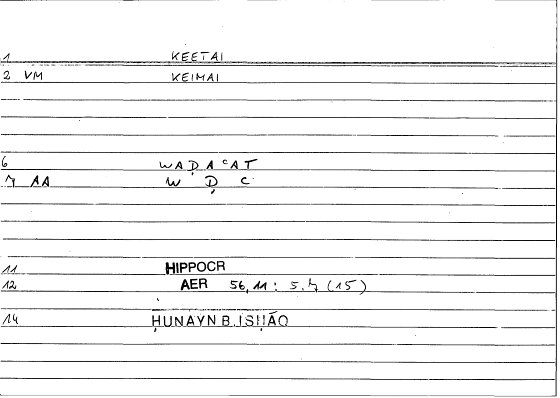 1 KEETAI
2 VM KEIMAI
6 WAḌAʿAT
7 AA W Ḍ ʿ
11 HIPPOCR
12 AER 56,11: 5.7 (15)
14 ḤUNAYN B. ISḤĀQ